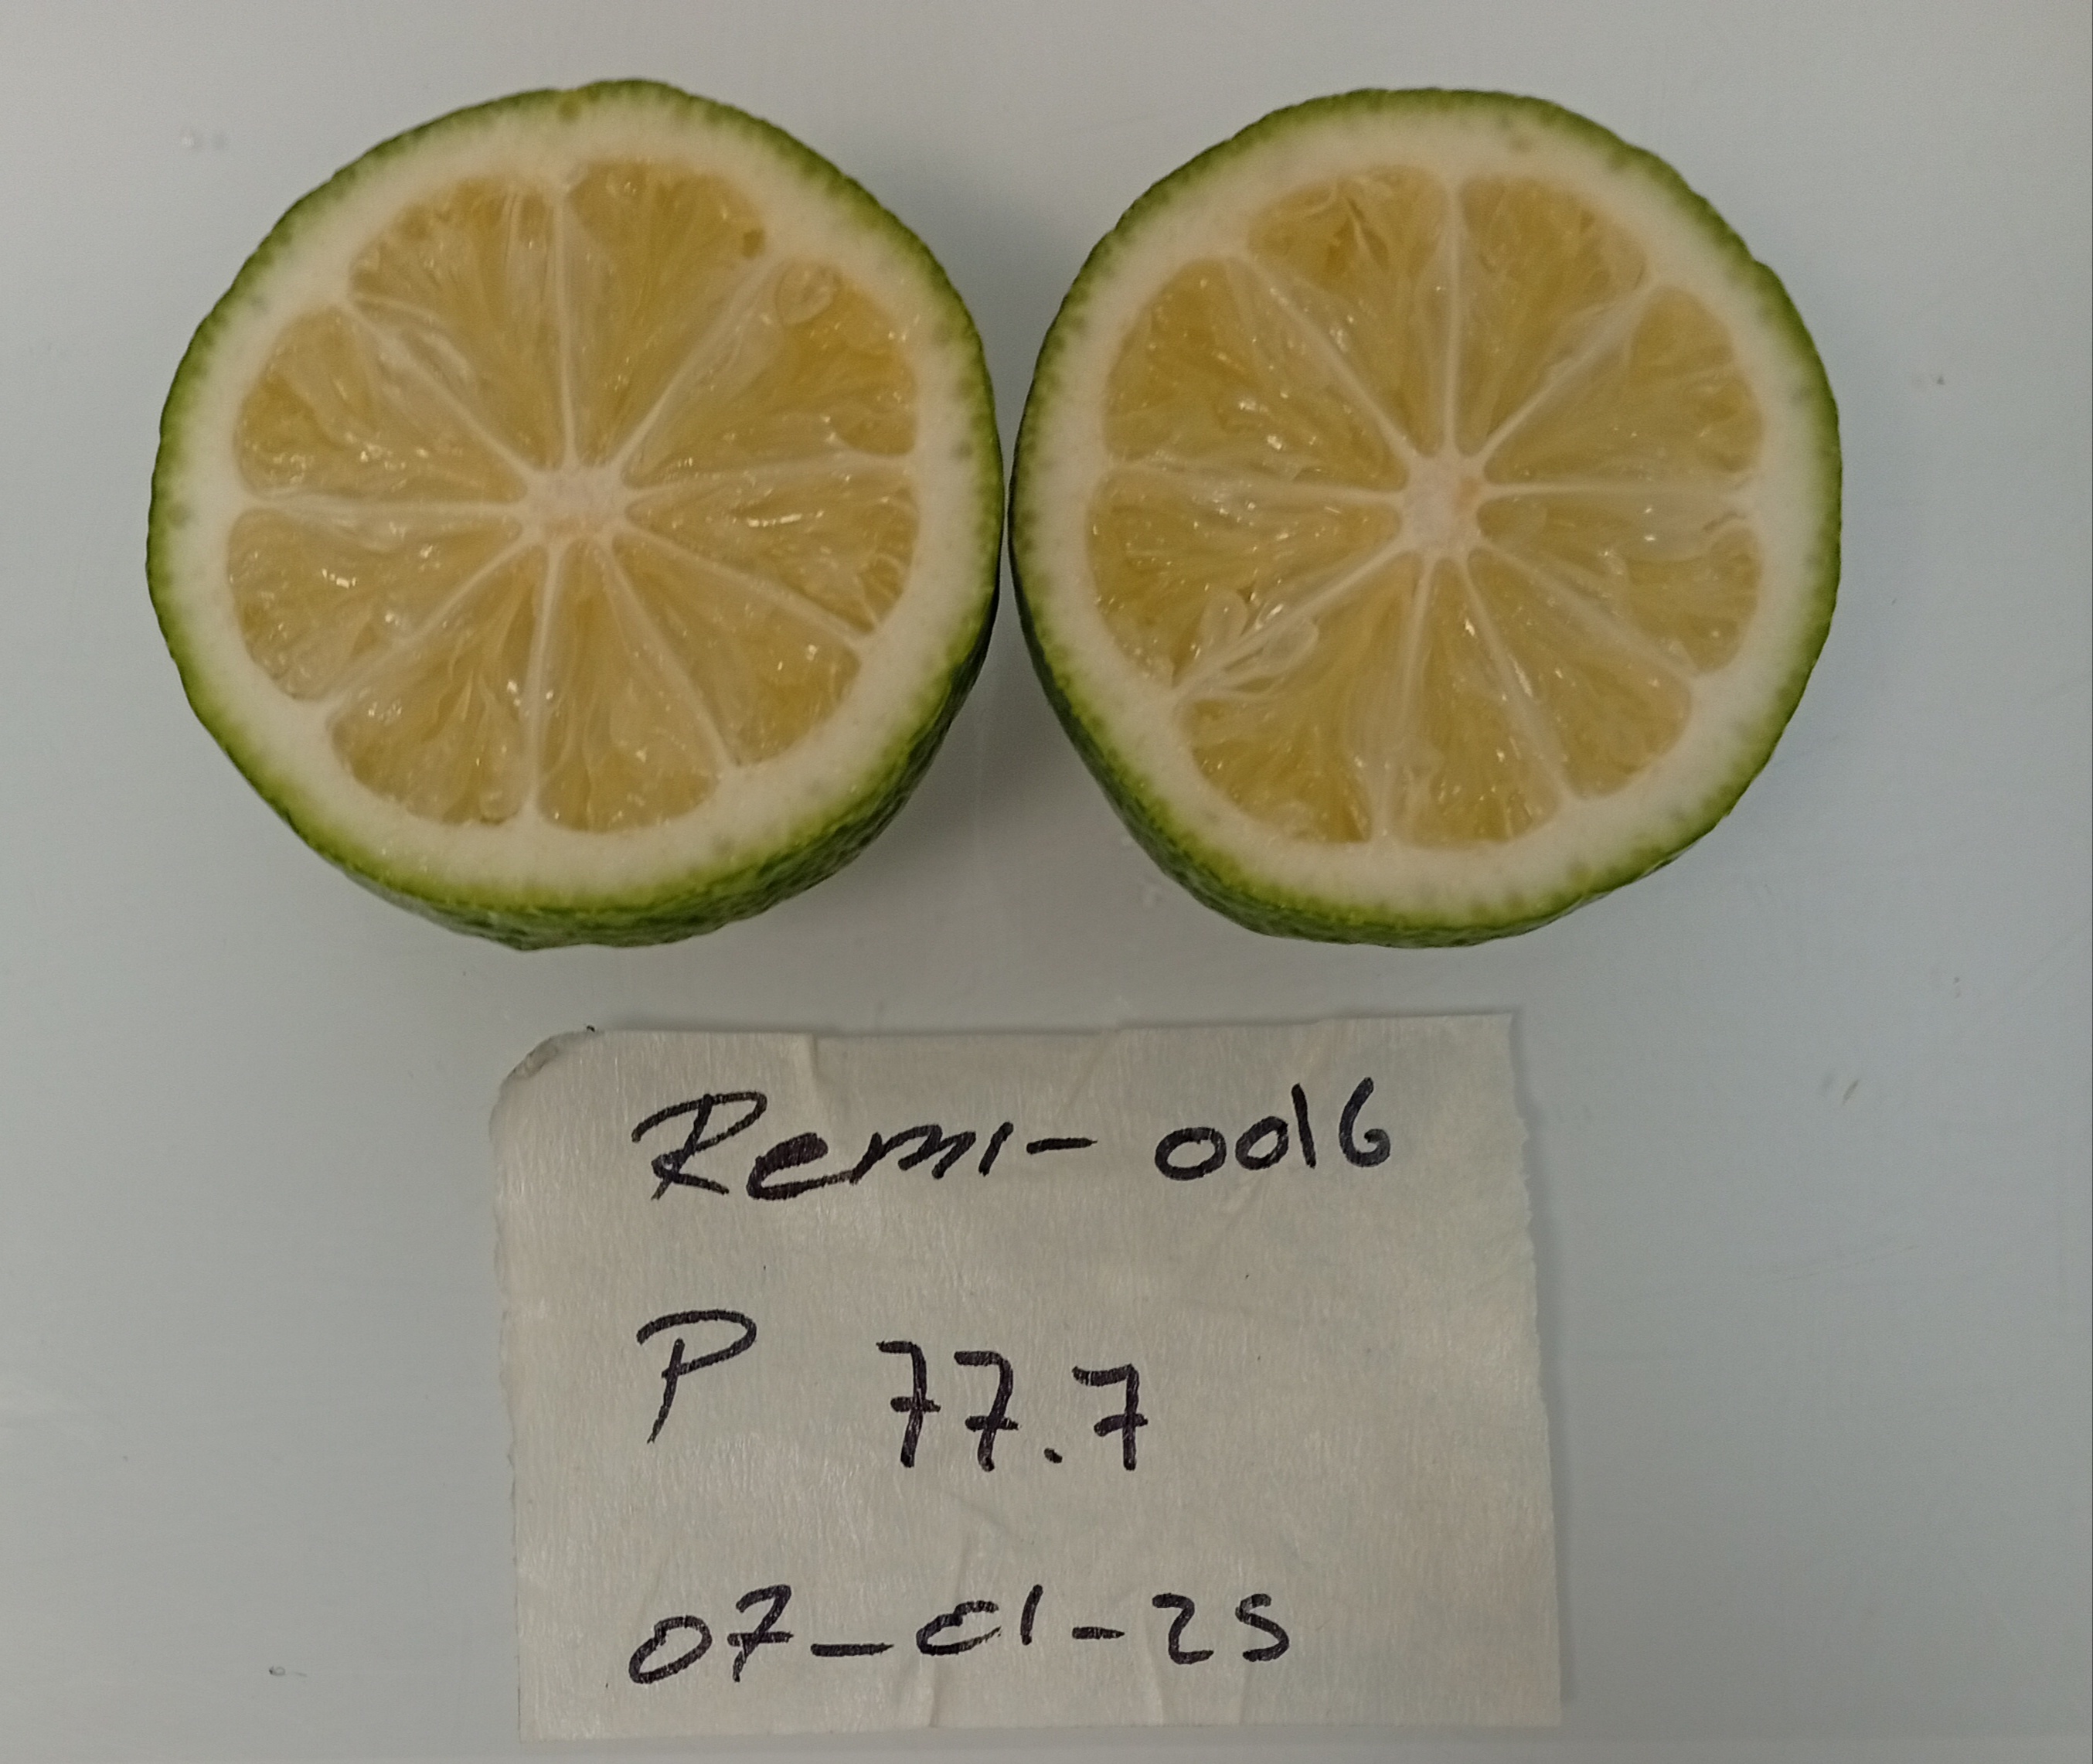 Remi-0016
P 77.7
07-01-25